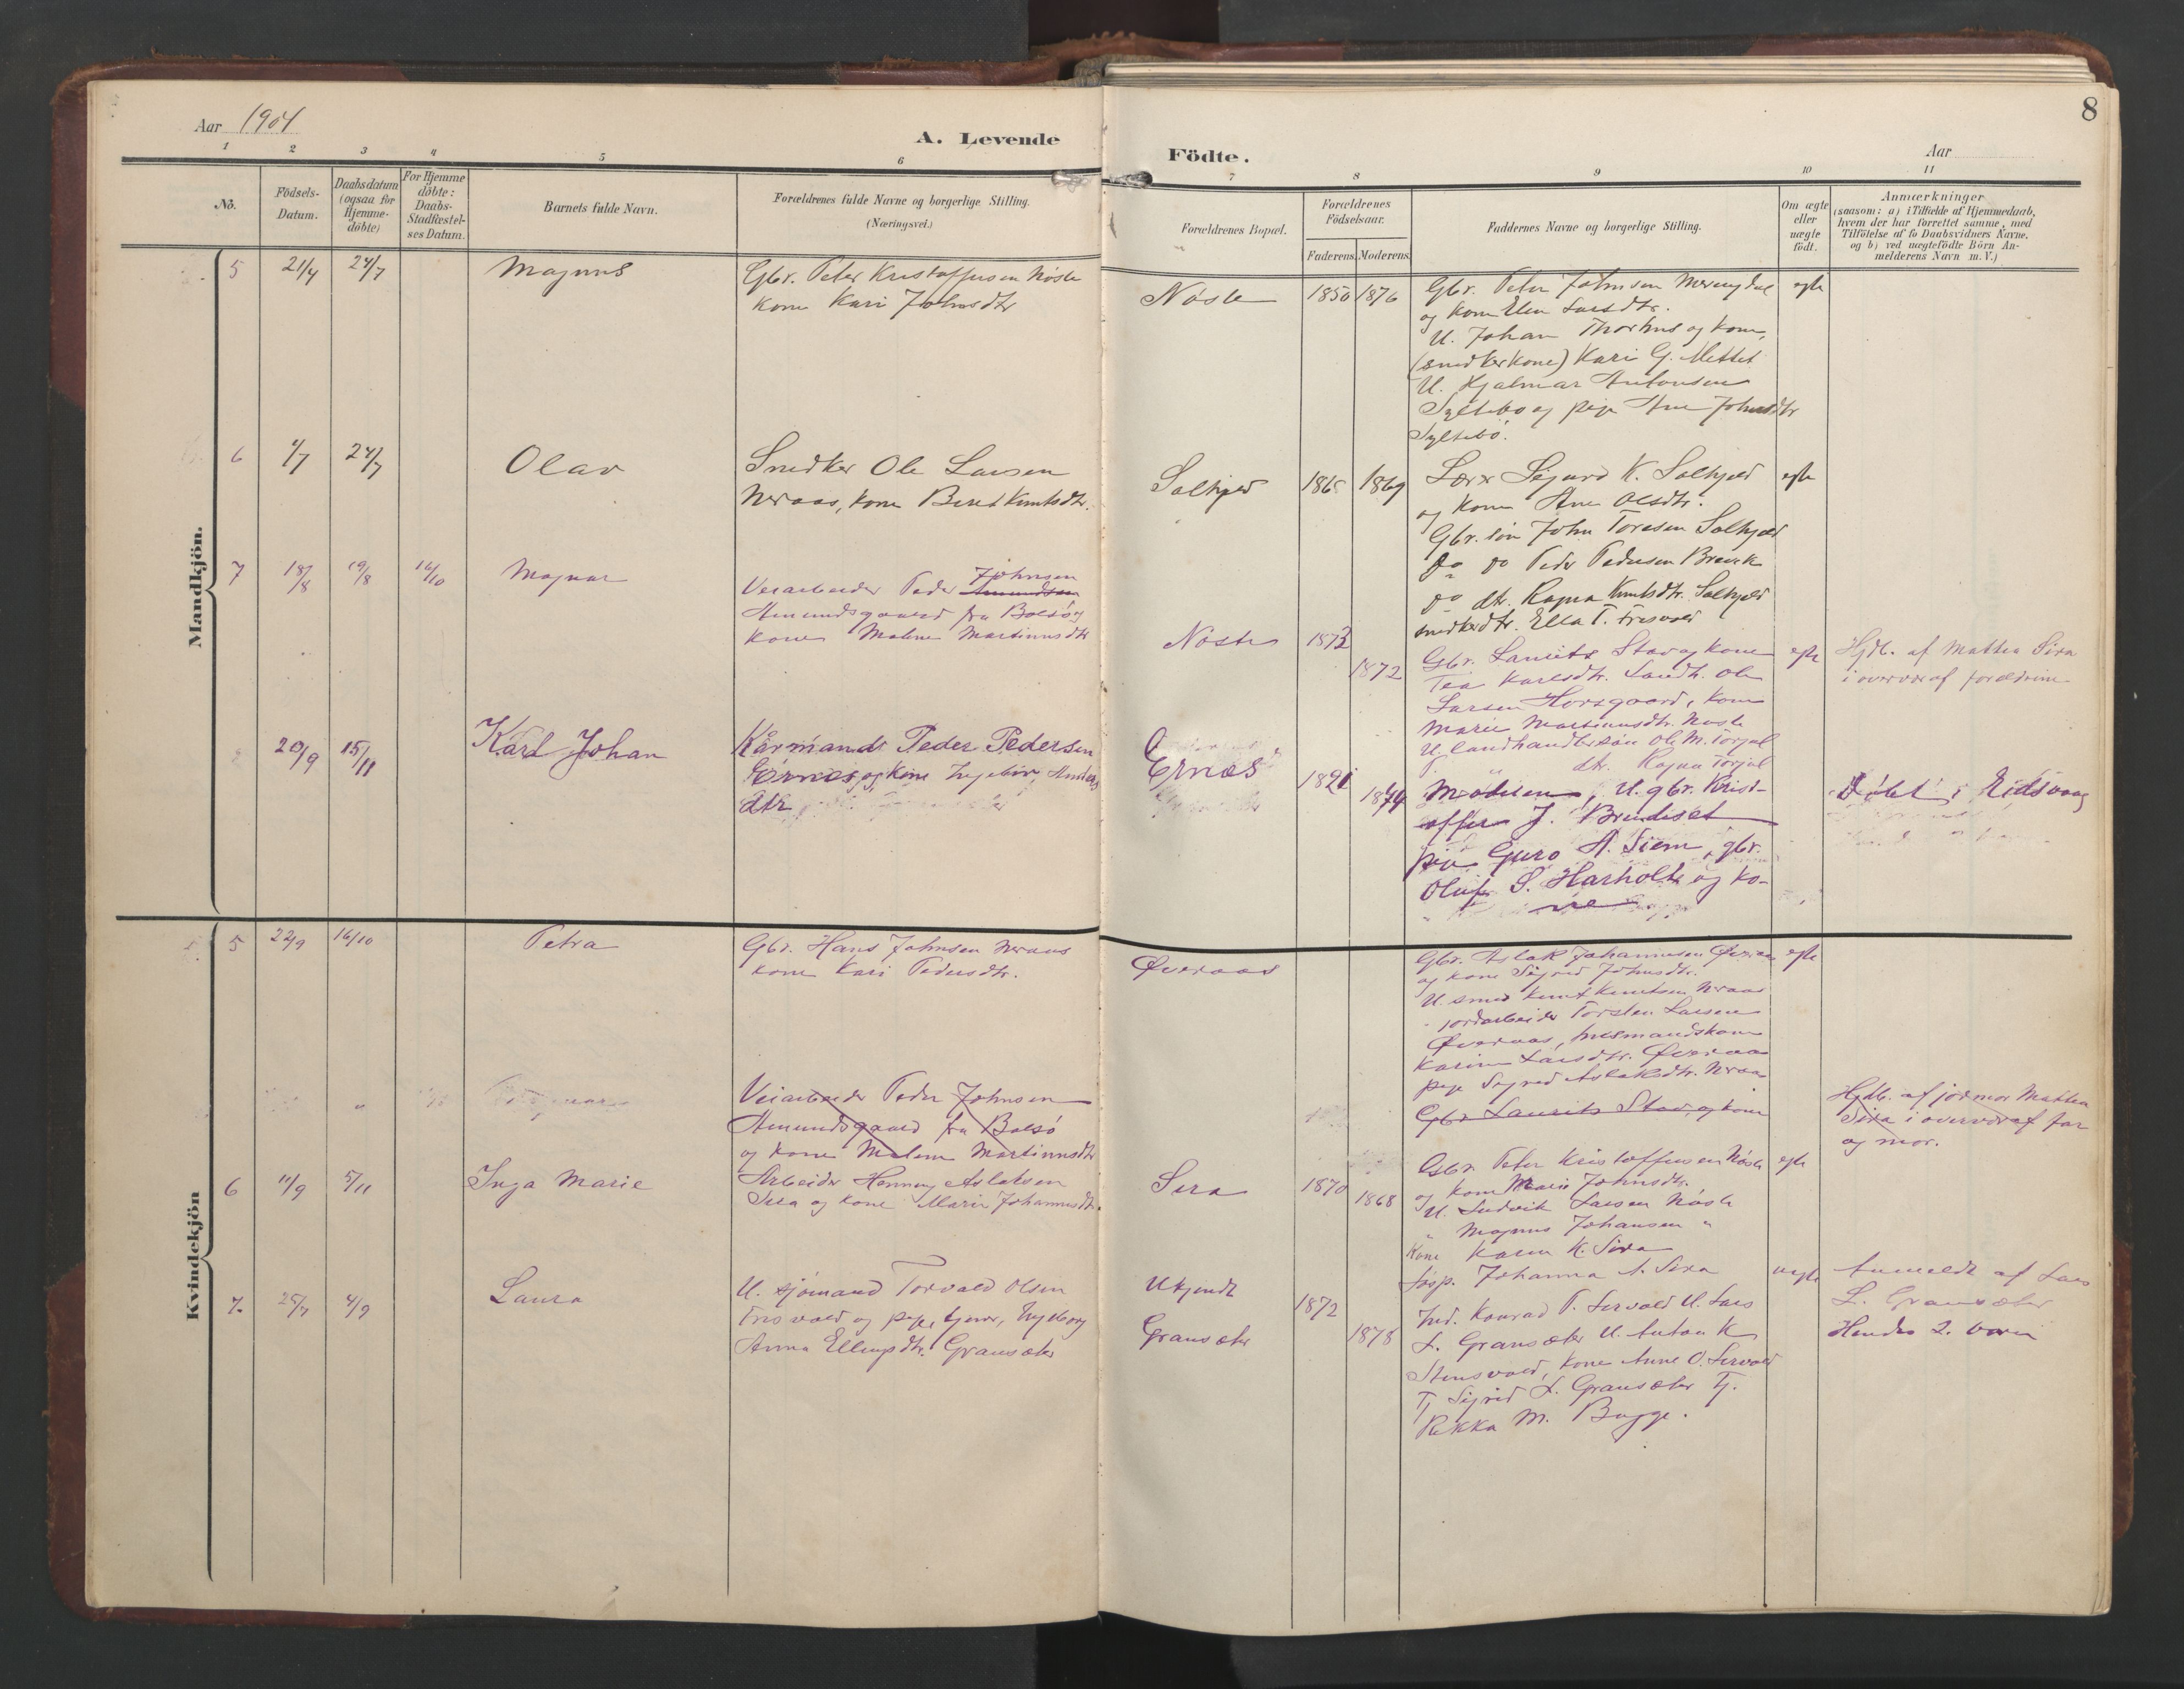 Aar 1904
A. Levende
Födte.
Aar
8
1 2 3 4 5 6 7 8 9 10 11
No.
Födsels-
Datum.
Daabsdatum
(ogsaa for
Hjemme-
döbte)
For Hjemme
döbte:
Daabs-
Stadfæstel-
ses Datum.
Barnets fulde Navn.
Forældrenes fulde Navne og borgerlige Stilling.
(Næringsvei.)
Forældrenes Bopæl.
Forældrenes
Födselsaar.
Faderens. Moderens.
Faddernes Navne og borgerlige Stilling.
Om ægte
eller
uægte
født.
Anmærkninger
(saasom: a) i Tilfælde af Hjemmedaab,
hvem der har forrettet samme, med
Tilföielse af to Daabsvidners Navne,
og b) ved uægtefödte Börn An-
melderens Navn m.V.)
Mandkjön.
5 21/4 24/7 Magnus
Gbr. Peter Kristoffersen Nøste
kone Kari Johnsdtr
Nøste 1850 1876
Gbr. Peter Johnsen
og kone Elen Larsdtr.
U. Johan Thorhus og kone,
(snedkerkone) Kari G. Mittet
U. Hjalmar Antonsen
Syltebø og pige Ane Johnsdtr
Syltebø.
egte
6 4/7 24/7 Olav
Snedker Ole Larsen
Neraas, kone Beret Knutsdtr.
Solhjeld 1865 1869
Lærer Sigurd K. Solhjeld
og kone Ane Olsdtr.
Gbr. søn John Toresen Solhjeld
do do Peder Pedersen Brevik
do dtr. Ragna Knutsdtr. Solhjeld
snedkerdtr. Ella T. Frisvold
egte
7 18/8 19/8 16/10 Magnar
Veiarbeider Peder Johnsen
Amundsen
Amundsgaard fra Bolsø og
kone Malene Martinusdtr
Nøste 1873
1872
Gbr. Laurits Stav og kone
Tea Karlsdtr. Landh. Ole
Larsen Horsgaard, kone
Marie Martinusdtr. Nøste
U. landhandlersøn Ole M. Torjul
P. " dtr. Ragna Torjul
egte
Hjdb. af Mattea Sira
i overvær af forældrene
20/9 15/11 Karl Johan
Kårmand Peder Pedersen
Ernæs og kone Ingebor Anders
dtr
Ernæs 1821
1874
Moderen, U. gbr. Krist-
offer J. Bredeset
pige Guro A. Siem, gbr.
Oluf S. Harholt og ko-
ne
Døbt i Eidsvaag
Kvindekjön
5 22/9 16/10 Petra
Gbr. Hans Johnsen Neraas
kone Kari Pedersdtr.
Øveraas
Gbr. Aslak Johannesen Øveraas
og kone Sigrid Johnsdtr.
U. smed Knut Knutsen Neraas
" jordarbeider Torsten Larsen
Øveraas, husmandskone
Karine Larsdtr. Øveraas
pige Sigrid Aslaksdtr. Neraas
egte
Veiarbeider Peder Johnsen
Amundsgaard fra Bolsø
og kone Malene Martinusdtr
Gbr Laurits Stav og kone
Hjdb. af jormor Mattea
Sira i overvær af far
og mor.
6 11/9 5/11 Inga Marie
Arbeider Henning Aslaksen
Sira og kone Marie Johannesdtr.
Sira 1870
1868
Gbr. Peter Kristoffersen Nøste
og kone Marie Johnsdtr.
U. Ludvik Larsen Nøste
" Magnus Johansen "
Kone Karen K. Sira
Johanna A. Sira
egte
7. 25/7 4/9 Laura
U. sjømand Torvald Olsen
Frisvold og pige, tjener, Ingeborg
Anna Ellingsdtr. Gransæter
Ukjendt
Gransæter
1872
1878
Ind. Konrad P. Servold U. Lars
L. Gransæter U. Anton K
Stensvold, kone Anne O. Servold
Tj Sigrid L. Gransæter Tj.
Rikka M. Bugge.
uegte
Anmeldt af Lars
L. Gransæter
Hendes 2. barn